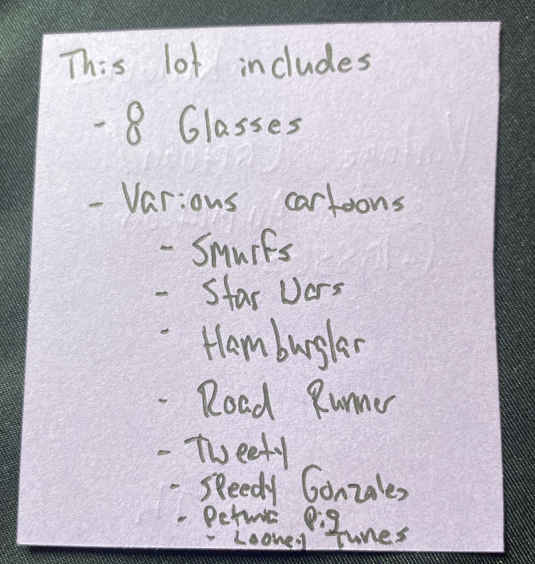 This lot includes
- 8 Glasses
- Various cartoons
- Smurfs
- Star Wars
- Hamburglar
- Road Runner
- Tweety
- Speedy Gonzales
- Petunia Pig
- Looney Tunes